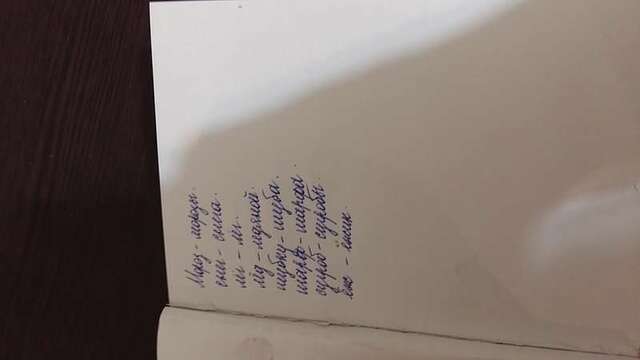 Мороз - морозы.
снег - снега.
лёг - лёг.
лёд - ледяной.
шубку - шуба.
шарф - шарфа.
сугроб - сугробы.
ёж - ёжик.